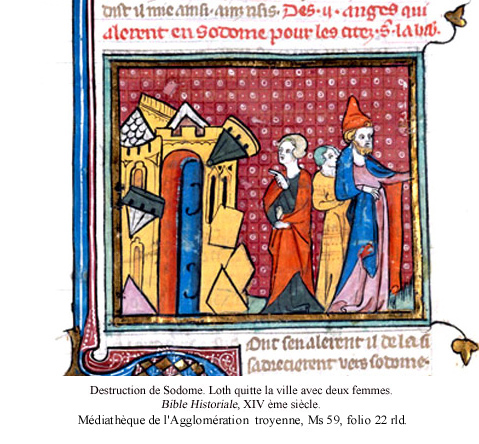 dist il mie ainsi Des .ii. anges qui
alerent en Sodome pour les citez. S. la
Ont sen alerent il de la si
sadrecierent vers sodome.
Destruction de Sodome. Loth quitte la ville avec deux femmes.
Bible Historiale, XIV ème siècle.
Médiathèque de l'Agglomération troyenne, Ms 59, folio 22 rld.